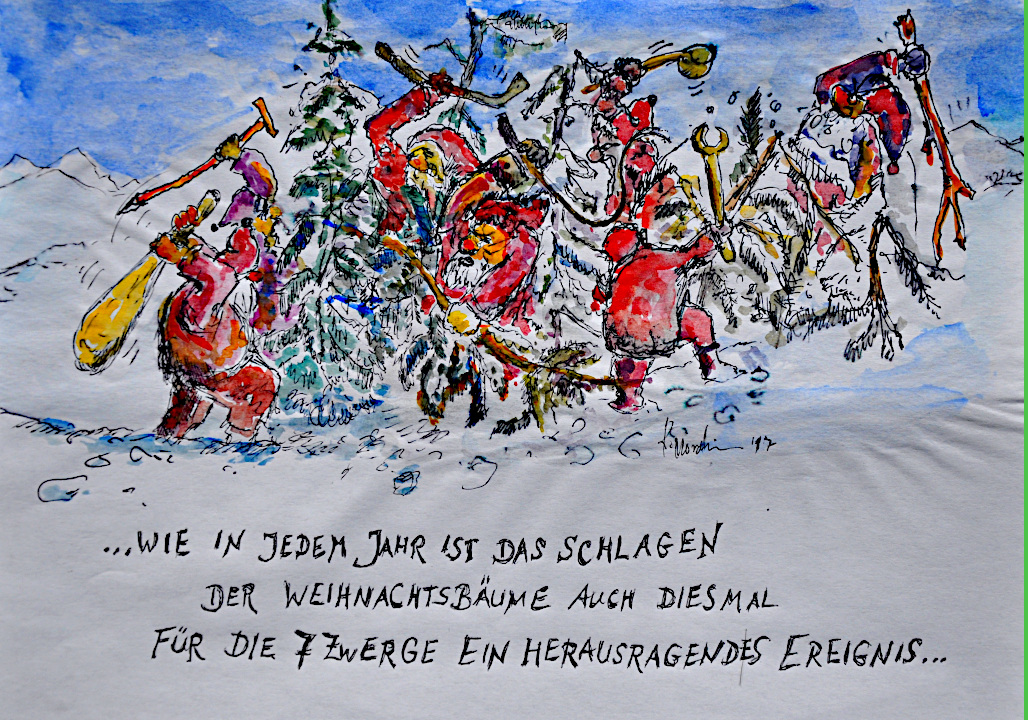 ...WIE IN JEDEM JAHR IST DAS SCHLAGEN
DER WEIHNACHTSBÄUME AUCH DIESMAL
FÜR DIE 7 ZWERGE EIN HERAUSRAGENDES EREIGNIS...